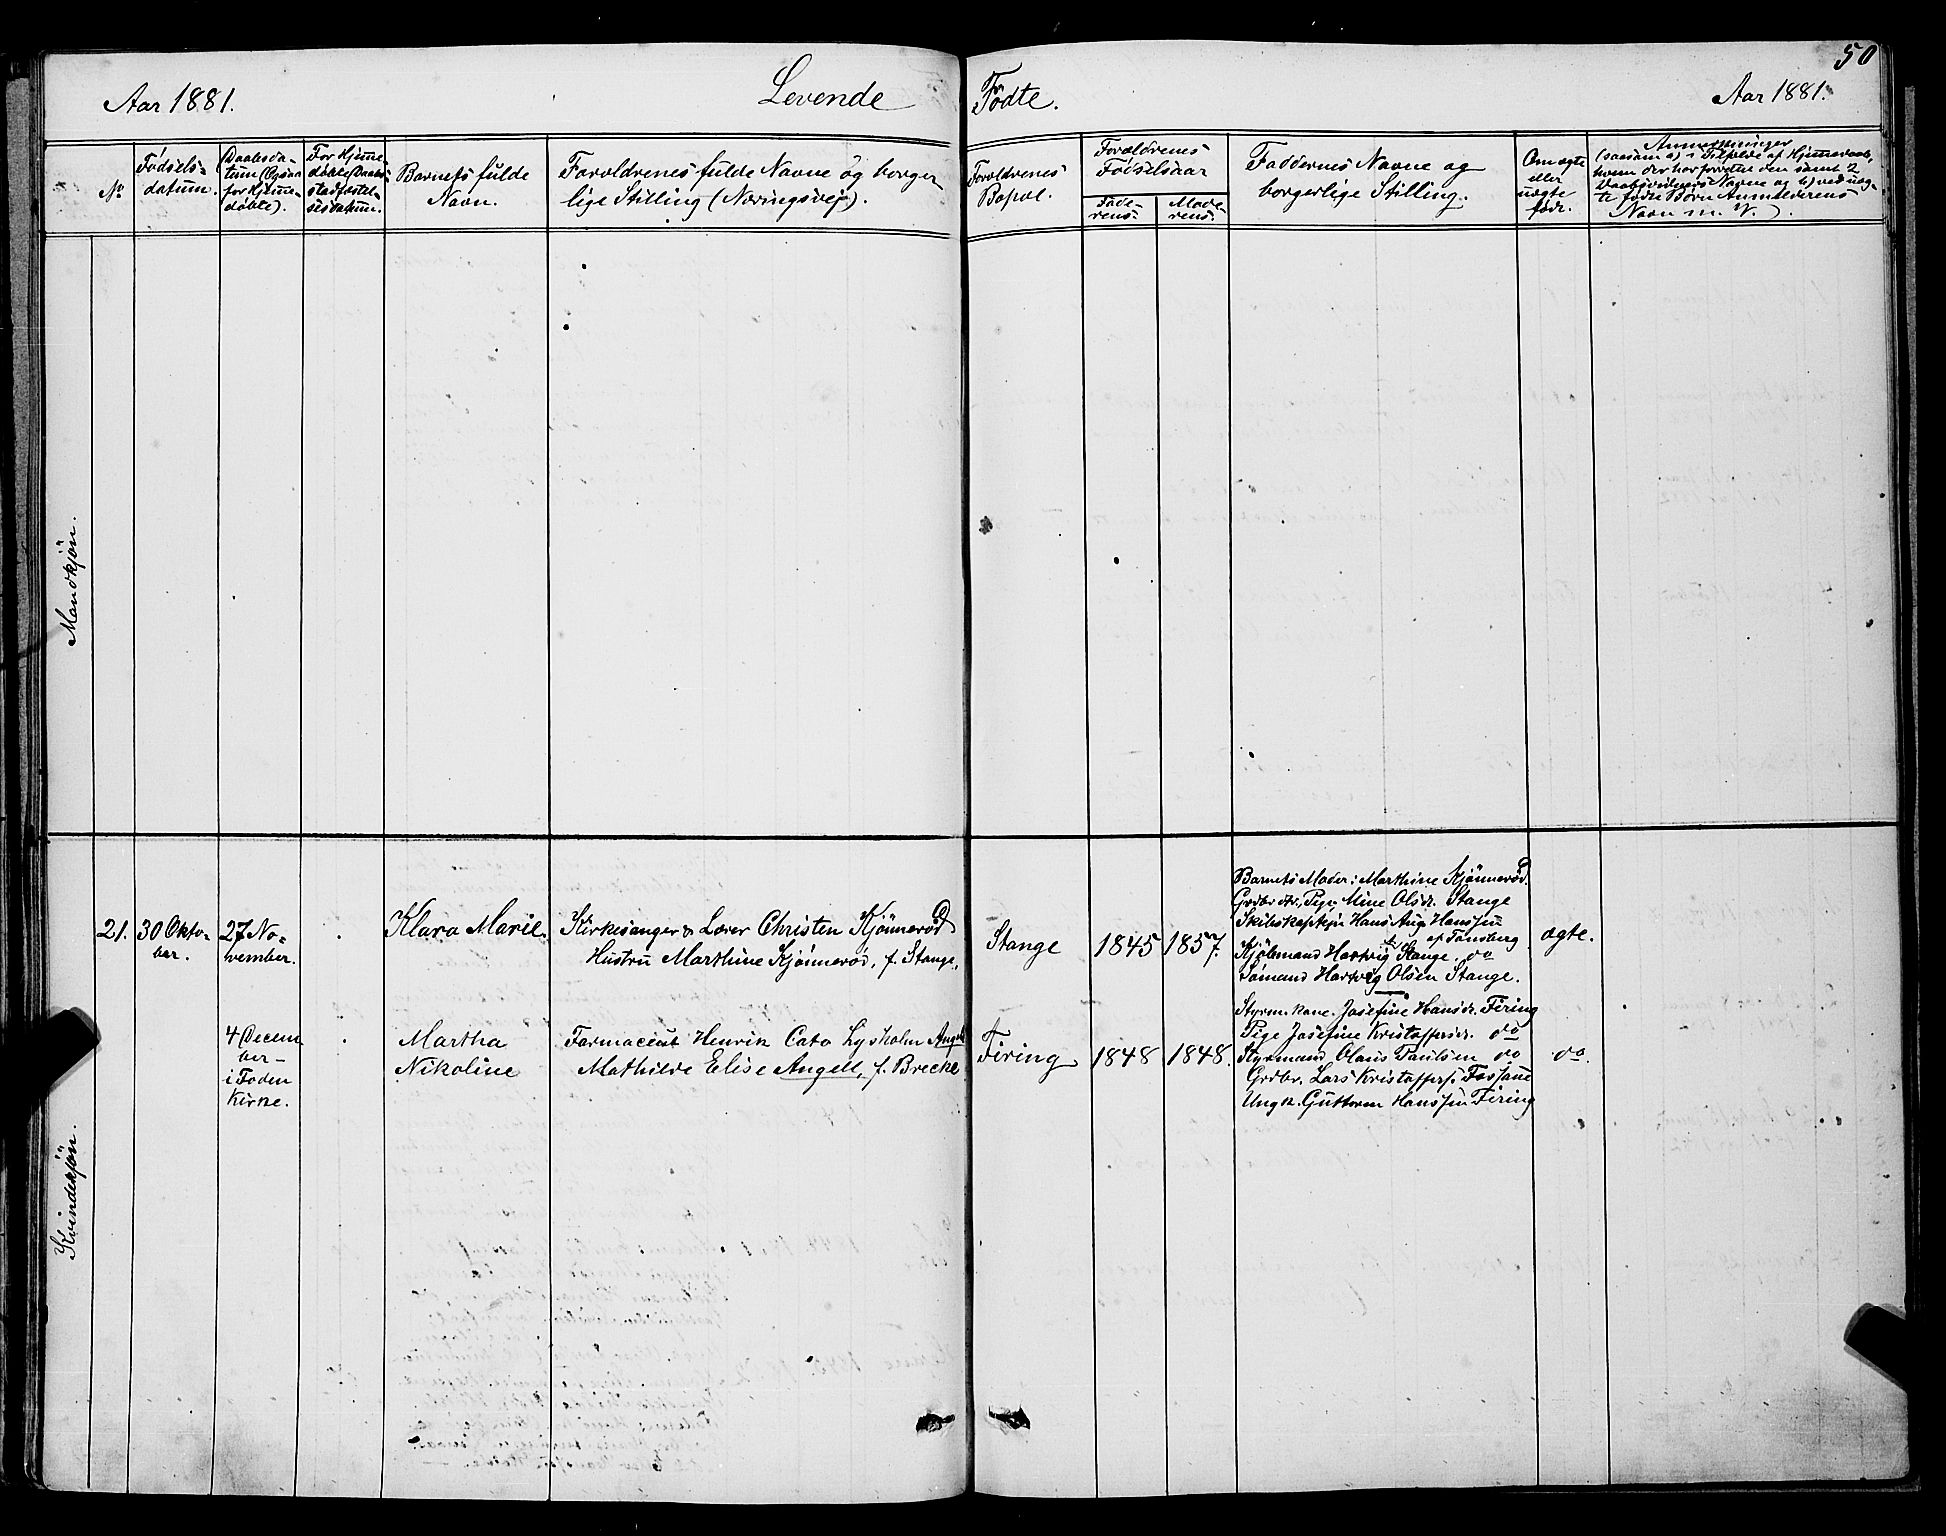 50
Aar 1881.
Levende
Födte.
Aar 1881.
No
Födsels-
datum.
Daabsda-
tum (Ogsaa
for Hjemme-
döbte).
For Hjemme-
döbte Daabs-
stadfæstel-
sesdatum.
Barnets fulde
Navn.
Forældrenes fulde Navne og borger
lige Stilling (Næringsvej).
Forældrenes
Bopæl.
Forældrenes
Födselsaar
Fade-
rens.
Mode-
rens.
Faddernes Navne og
borgerlige Stilling.
Om ægte
eller
uægte
födt.
Anmerkninger
(saasom a) i Tilfælde af Hjemmedaab,
hvem der har forrettet den samt 2
Daabsvidners Navne og b) ved uæg-
te födte Börn Anmelderens
Navn m. V.)
Mandkjön.
Kvindekjön.
21.
30 Okto-
ber.
27 No-
vember.
Klara Marie.
Kirkesanger & Lærer Christen Kjönneröd
Hustru Marthine Kjönneröd, f. Stange.
Stange
1845
1857.
Barnets Moder: Marthine Kjönneröd.
Grdbr dtr, Pige Mine Olsdr. Stange
Skibskaptejn Hans Aug Hanssen
af Tönsberg
Kjöbmand Hartvig Stange. do
Sömand Hartvig Olsen Stange.
ægte.
4 Decem
ber -
i Foden
Kirke.
Martha
Nikoline
Farmaceut Henrik Cato Lysholm Angell
Mathilde Elise Angell, f. Brecke
Firing
1848
1848.
Styrm. kone. Josefine Hansdr. Firing
Pige Josefine Kristoffersdr. do
Styrmand Olaus Paulsen do
Grdbr. Lars Kristoffers.
Ungk. Guttorm Hanssen Firing
do.